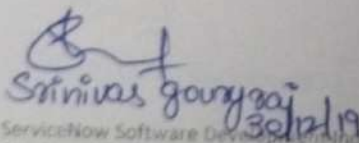 Srinivas gouryraj
30/12/19
ServiceNow Software De